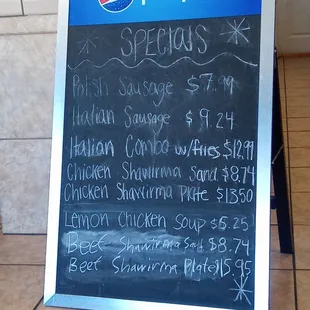 SPECIALS
Polish Sausage $7.99
Italian Sausage $9.24
Italian Combo w/fries $12.99
Chicken Shawirma Sand $8.74
Chicken Shawirma Plate $13.50
Lemon Chicken Soup $5.25
Beef Shawirma Sand $8.74
Beef Shawirma Plate $15.95